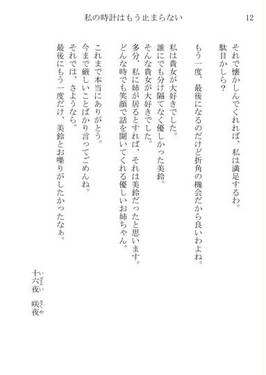 私の時計はもう止まらない
12
それで懐かしんでくれれば、私は満足するわ。
駄目かしら？
もう一度、最後になるのだけど折角の機会だから良いわよね。
私は貴女が大好きでした。
誰にでも分け隔てなく優しかった美鈴。
そんな貴女が大好きでした。
多分、私に姉が居るとすれば、それは美鈴だったと思います。
どんな時でも笑顔で話を聞いてくれる優しいお姉ちゃん。
これまで本当にありがとう。
今まで厳しいことばかり言ってごめんね。
それでは、さようなら。
最後にもう一度だけ、美鈴とお喋りがしたかったなぁ。
十六夜　咲夜
いざよい　さくや